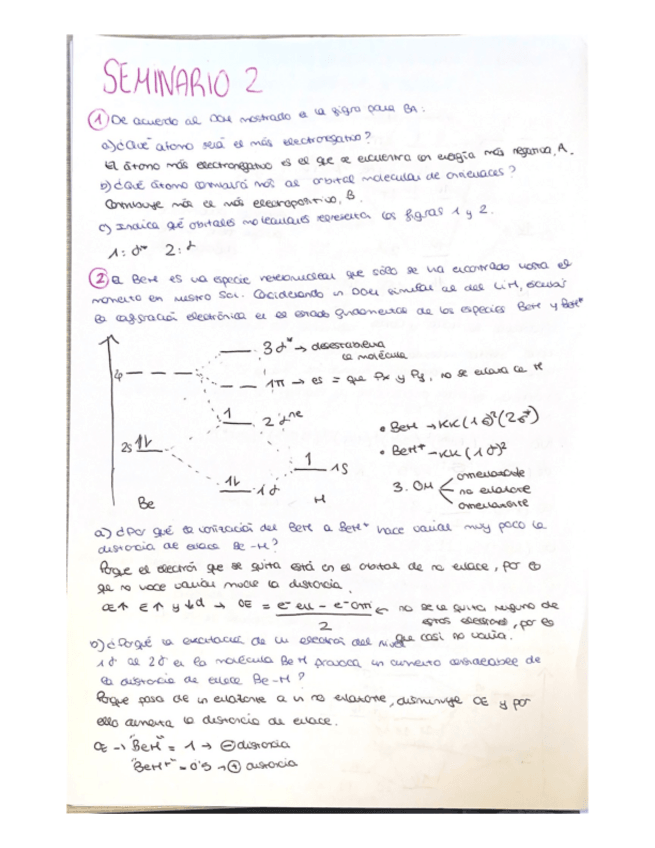 SEMINARIO 2
① De acuerdo al DOM mostrado en la figra para BA:
a) ¿Qué átomo será el más electronegativo?
El átomo más electronegativo es el que se encuentra con energía más negativa, A.
b) ¿Qué átomo contribuirá más al orbital molecular de antienlaces?
Contribuye más el más electropositivo, B.
c) Indica qué orbitales moleculares representan las figuras 1 y 2.
1: σ* 2: σ
② El BeH es una especie que sólo se ha encontrado hasta el
momento en nuestro Sol. Considerando un DOM similar al del LiH, escribir
la configuración electrónica en el estado fundamental de las especies BeH y BeH⁺
3σ* → desestabiliza
la molécula
1π → es = que Px y Py, no se enlaza con H
1
2σⁿᵉ
2s 1l
1
1S
1l
1σ
Be
H
• BeH → KK(1σ)²(2σ*)
• BeH⁺ → KK(1σ)²
3. OM
enlazante
no enlazante
antienlazante
a) ¿Por qué la ionización del BeH a BeH⁺ hace variar muy poco la
distancia de enlace Be-H?
Porque el electrón que se quita está en el orbital de no enlace, por eso
que no hace variar mucho la distancia.
OE↑ E↑ y ↓d → OE = e⁻enl - e⁻anti / 2
← no se le quita ninguno de
estos electrones, por eso
que casi no varía.
b) ¿Por qué la excitación de un electrón del nivel
1σ al 2σ en la molécula BeH provoca un aumento considerable de
la distancia de enlace Be-H?
Porque pasa de un enlazante a un no enlazante, disminuye OE y por
ello aumenta la distancia de enlace.
OE → "BeH" = 1 → ⊖ distancia
"BeH⁺" = 0'5 → ⊕ distancia